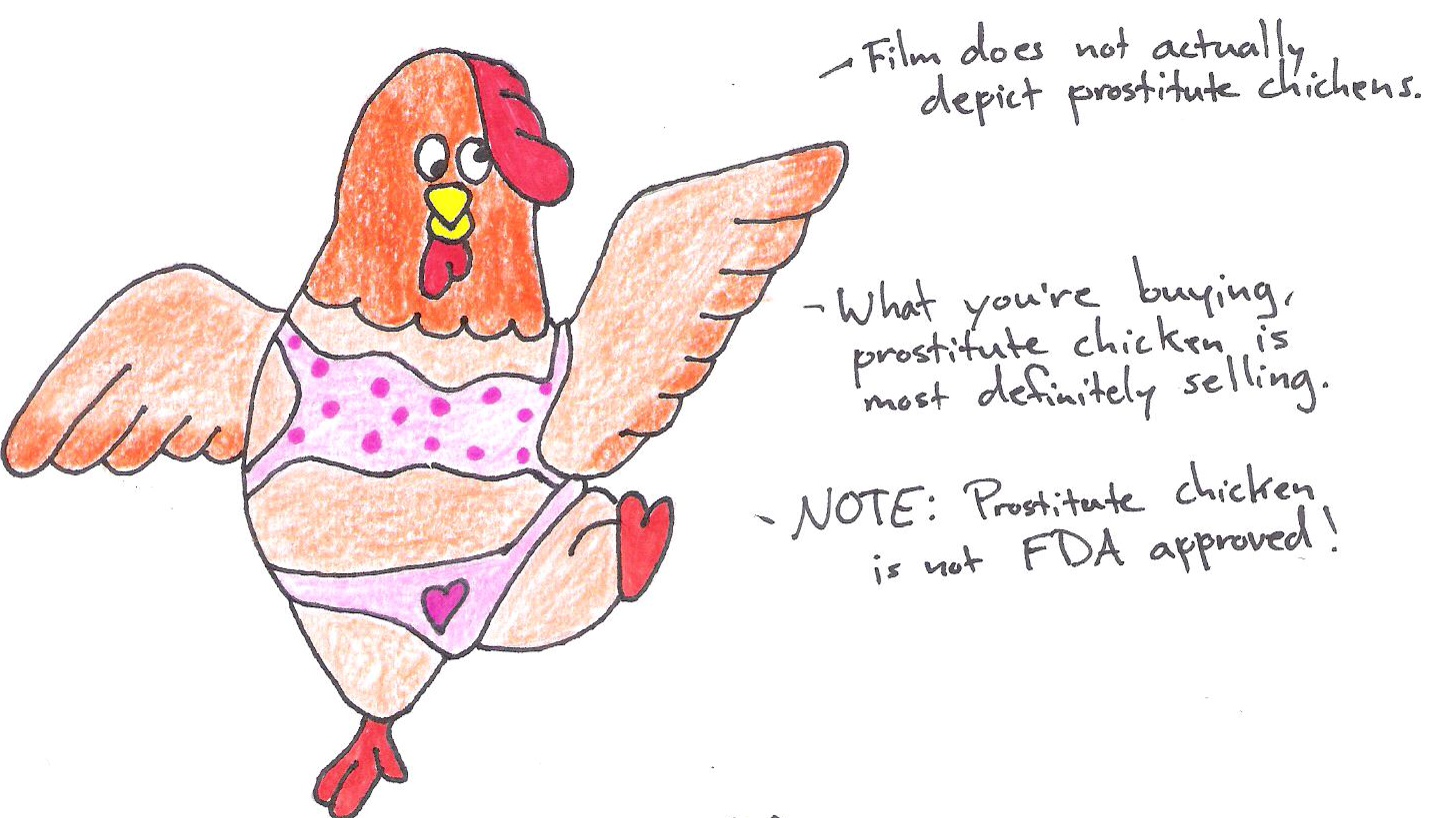 - Film does not actually
depict prostitute chickens.
- What you're buying,
prostitute chicken is
most definitely selling.
- NOTE: Prostitute chicken
is not FDA approved!